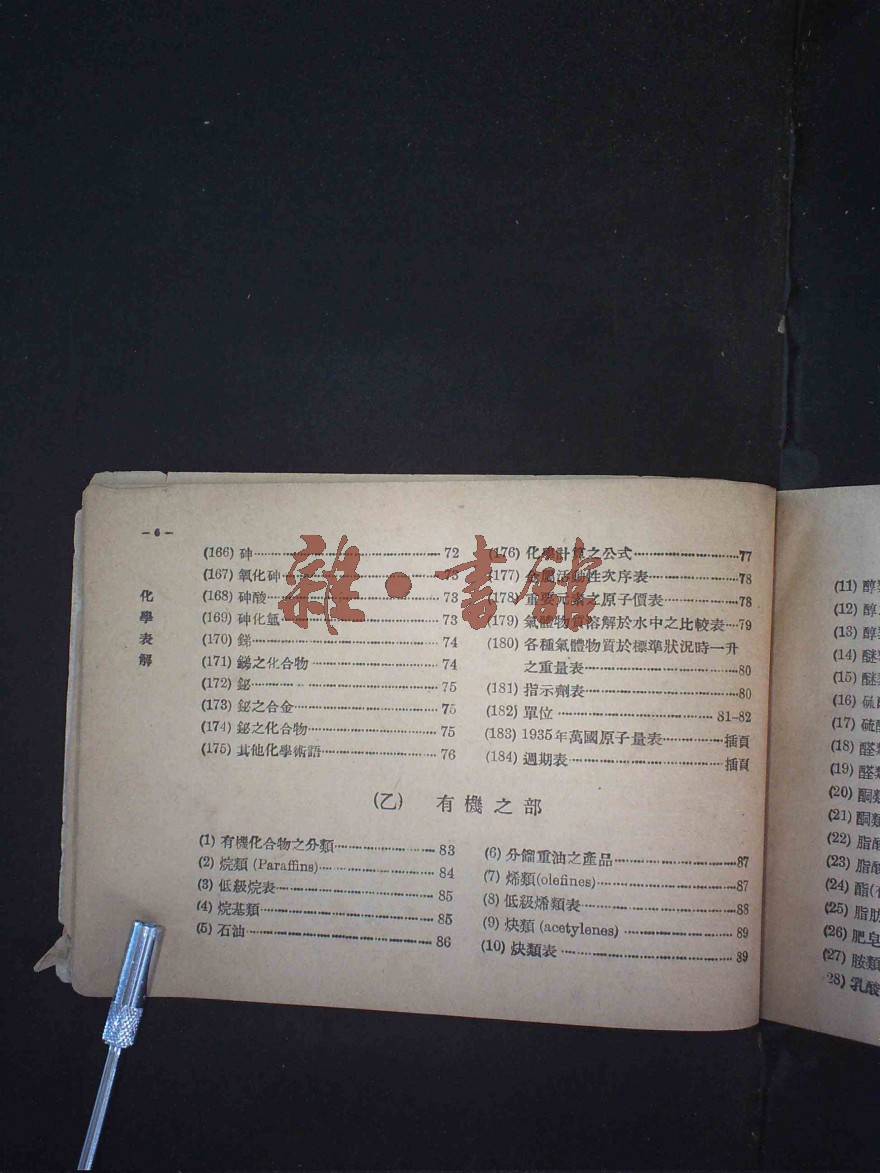 －6－
化學表解
(166) 砷 72
(167) 氧化砷 73
(168) 砷酸 73
(169) 砷化氫 73
(170) 銻 74
(171) 銻之化合物 74
(172) 鉍 75
(173) 鉍之合金 75
(174) 鉍之化合物 75
(175) 其他化學術語 76
(176) 化學計算之公式 77
(177) 金屬活動性次序表 78
(178) 重要元素之原子價表 78
(179) 氣體物質溶解於水中之比較表 79
(180) 各種氣體物質於標準狀況時一升
之重量表 80
(181) 指示劑表 80
(182) 單位 81-82
(183) 1935年萬國原子量表 插頁
(184) 週期表 插頁
(乙) 有機之部
(1) 有機化合物之分類 83
(2) 烷類 (Paraffins) 84
(3) 低級烷表 85
(4) 烷基類 85
(5) 石油 86
(6) 分餾重油之產品 87
(7) 烯類 (olefines) 87
(8) 低級烯類表 88
(9) 炔類 (acetylenes) 89
(10) 炔類表 89
(11) 醇
(12) 醇
(13) 醇
(14) 醚
(15) 醚
(16) 硫
(17) 硫
(18) 醛
(19) 醛
(20) 酮類
(21) 酮類
(22) 脂
(23) 脂
(24) 酯(
(25) 脂肪
(26) 肥皂
(27) 胺類
28) 乳酸
雜·書館